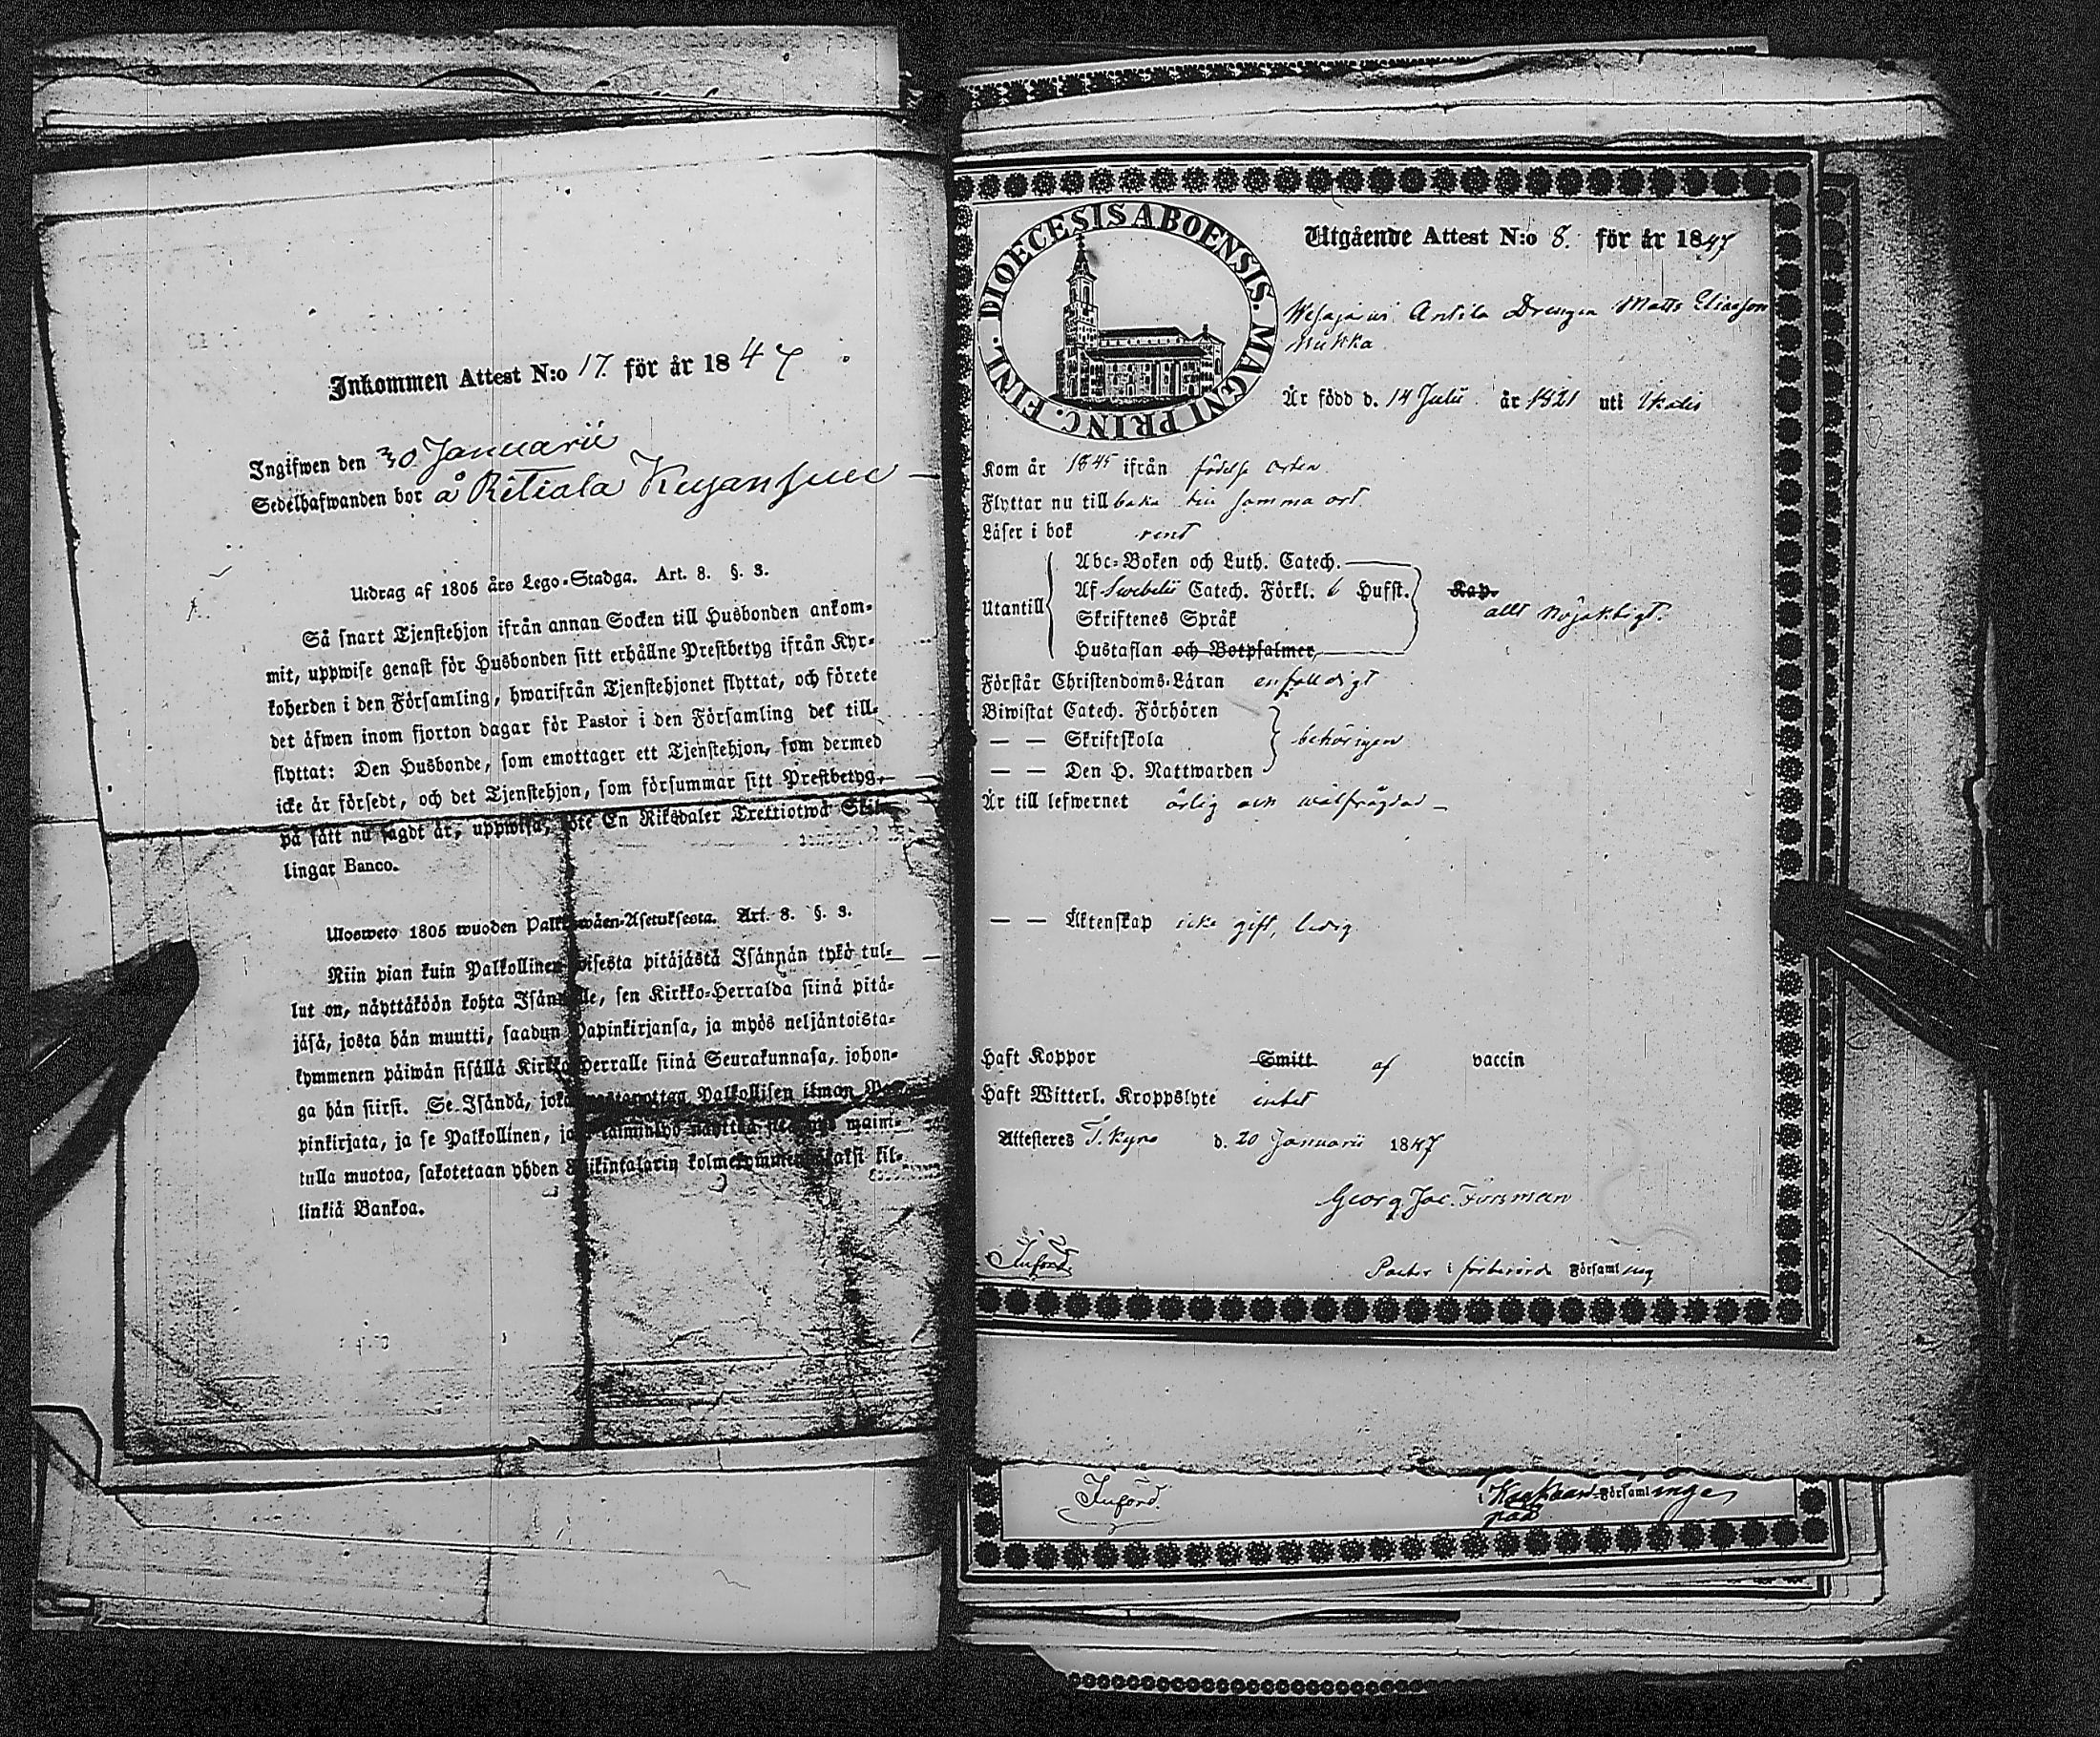 Inkommen Attest N:o 17. för år 1847.
Ingifwen den 30 Januarii
Sedelhafwanden bor å Ritiala Kujansuu
Utdrag af 1805 års Lego-Stadga. Art. 8. §. 3.
Så snart Tjenstehjon ifrån annan Socken till Husbonden ankom-
mit, uppwise genast för Husbonden sitt erhållne Prestbetyg ifrån Kyr-
koherden i den Församling, hwarifrån Tjenstehjonet flyttat, och förete
det äfwen inom fjorton dagar för Pastor i den Församling det till-
flyttat: Den Husbonde, som emottager ett Tjenstehjon, som dermed
icke är försedt, och det Tjenstehjon, som försummar sitt Prestbetyg,
på sätt nu sagdt är, uppwisa, böte En Riksdaler Trettiotwå Skil-
lingar Banco.
Ulosweto 1805 wuoden Palkkawäen-Asetuksesta. Art. 8. §. 3.
Niin pian kuin Palkollinen toisesta pitäjästä Isännän tykö tul-
lut on, näyttäköön kohta Isännälle, sen Kirkko-Herralda siinä pitä-
jäsä, josta hän muutti, saadun Papinkirjansa, ja myös neljäntoista-
kymmenen päiwän sisällä Kirkko-Herralle siinä Seurakunnasa, johon-
ga hän siirsi. Se Isändä, joka wastaanottaa Palkollisen ilman Pa-
pinkirjata, ja se Palkollinen, maini-
tulla muotoa, sakotetaan yhden Riikintalarin kolmekymmentäkaksi kil-
linkiä Bankoa.
DIOECESIS ABOENSIS. MAGNI PRINC. FINL.
Utgående Attest N:o 8. för år 1847
Antila Drengen Matts Eliasson
Mukka
Är född d. 14 Julii år 1821 uti Ikalis
Kom år 1845 ifrån födelse orten
Flyttar nu tillbaka till samma ort.
Läser i bok rent
Utantill
Abc-Boken och Luth. Catech.
Af Swebelii Catech. Förkl. 6 Hufst. Kap.
Skriftenes Språk
allt nöjaktigt.
Hustaflan och Botpsalmer
Förstår Christendoms-Läran enfaldigt
Biwistat Catech. Förhören
— — Skriftskola behörigen
— — Den H. Nattwarden
Är till lefwernet ärlig och wälfrägdad
— — Äktenskap icke gift, ledig
Haft Koppor Smitt af vaccin
Haft Witterl. Kroppslyte intet
Attesteres T. Kyro d. 20 Januarii 1847
Georg Jac. Forsman
Införd.
Pastor i förberörde Församling
Införd.
i Församlinge